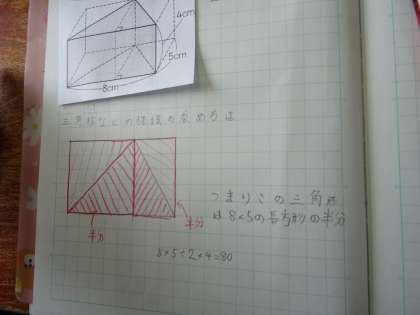 4cm
5cm
8cm
三角柱などの体積を求めるには
つまりこの三角形
は8×5の長方形の半分
半分
半分
8×5÷2×4=80